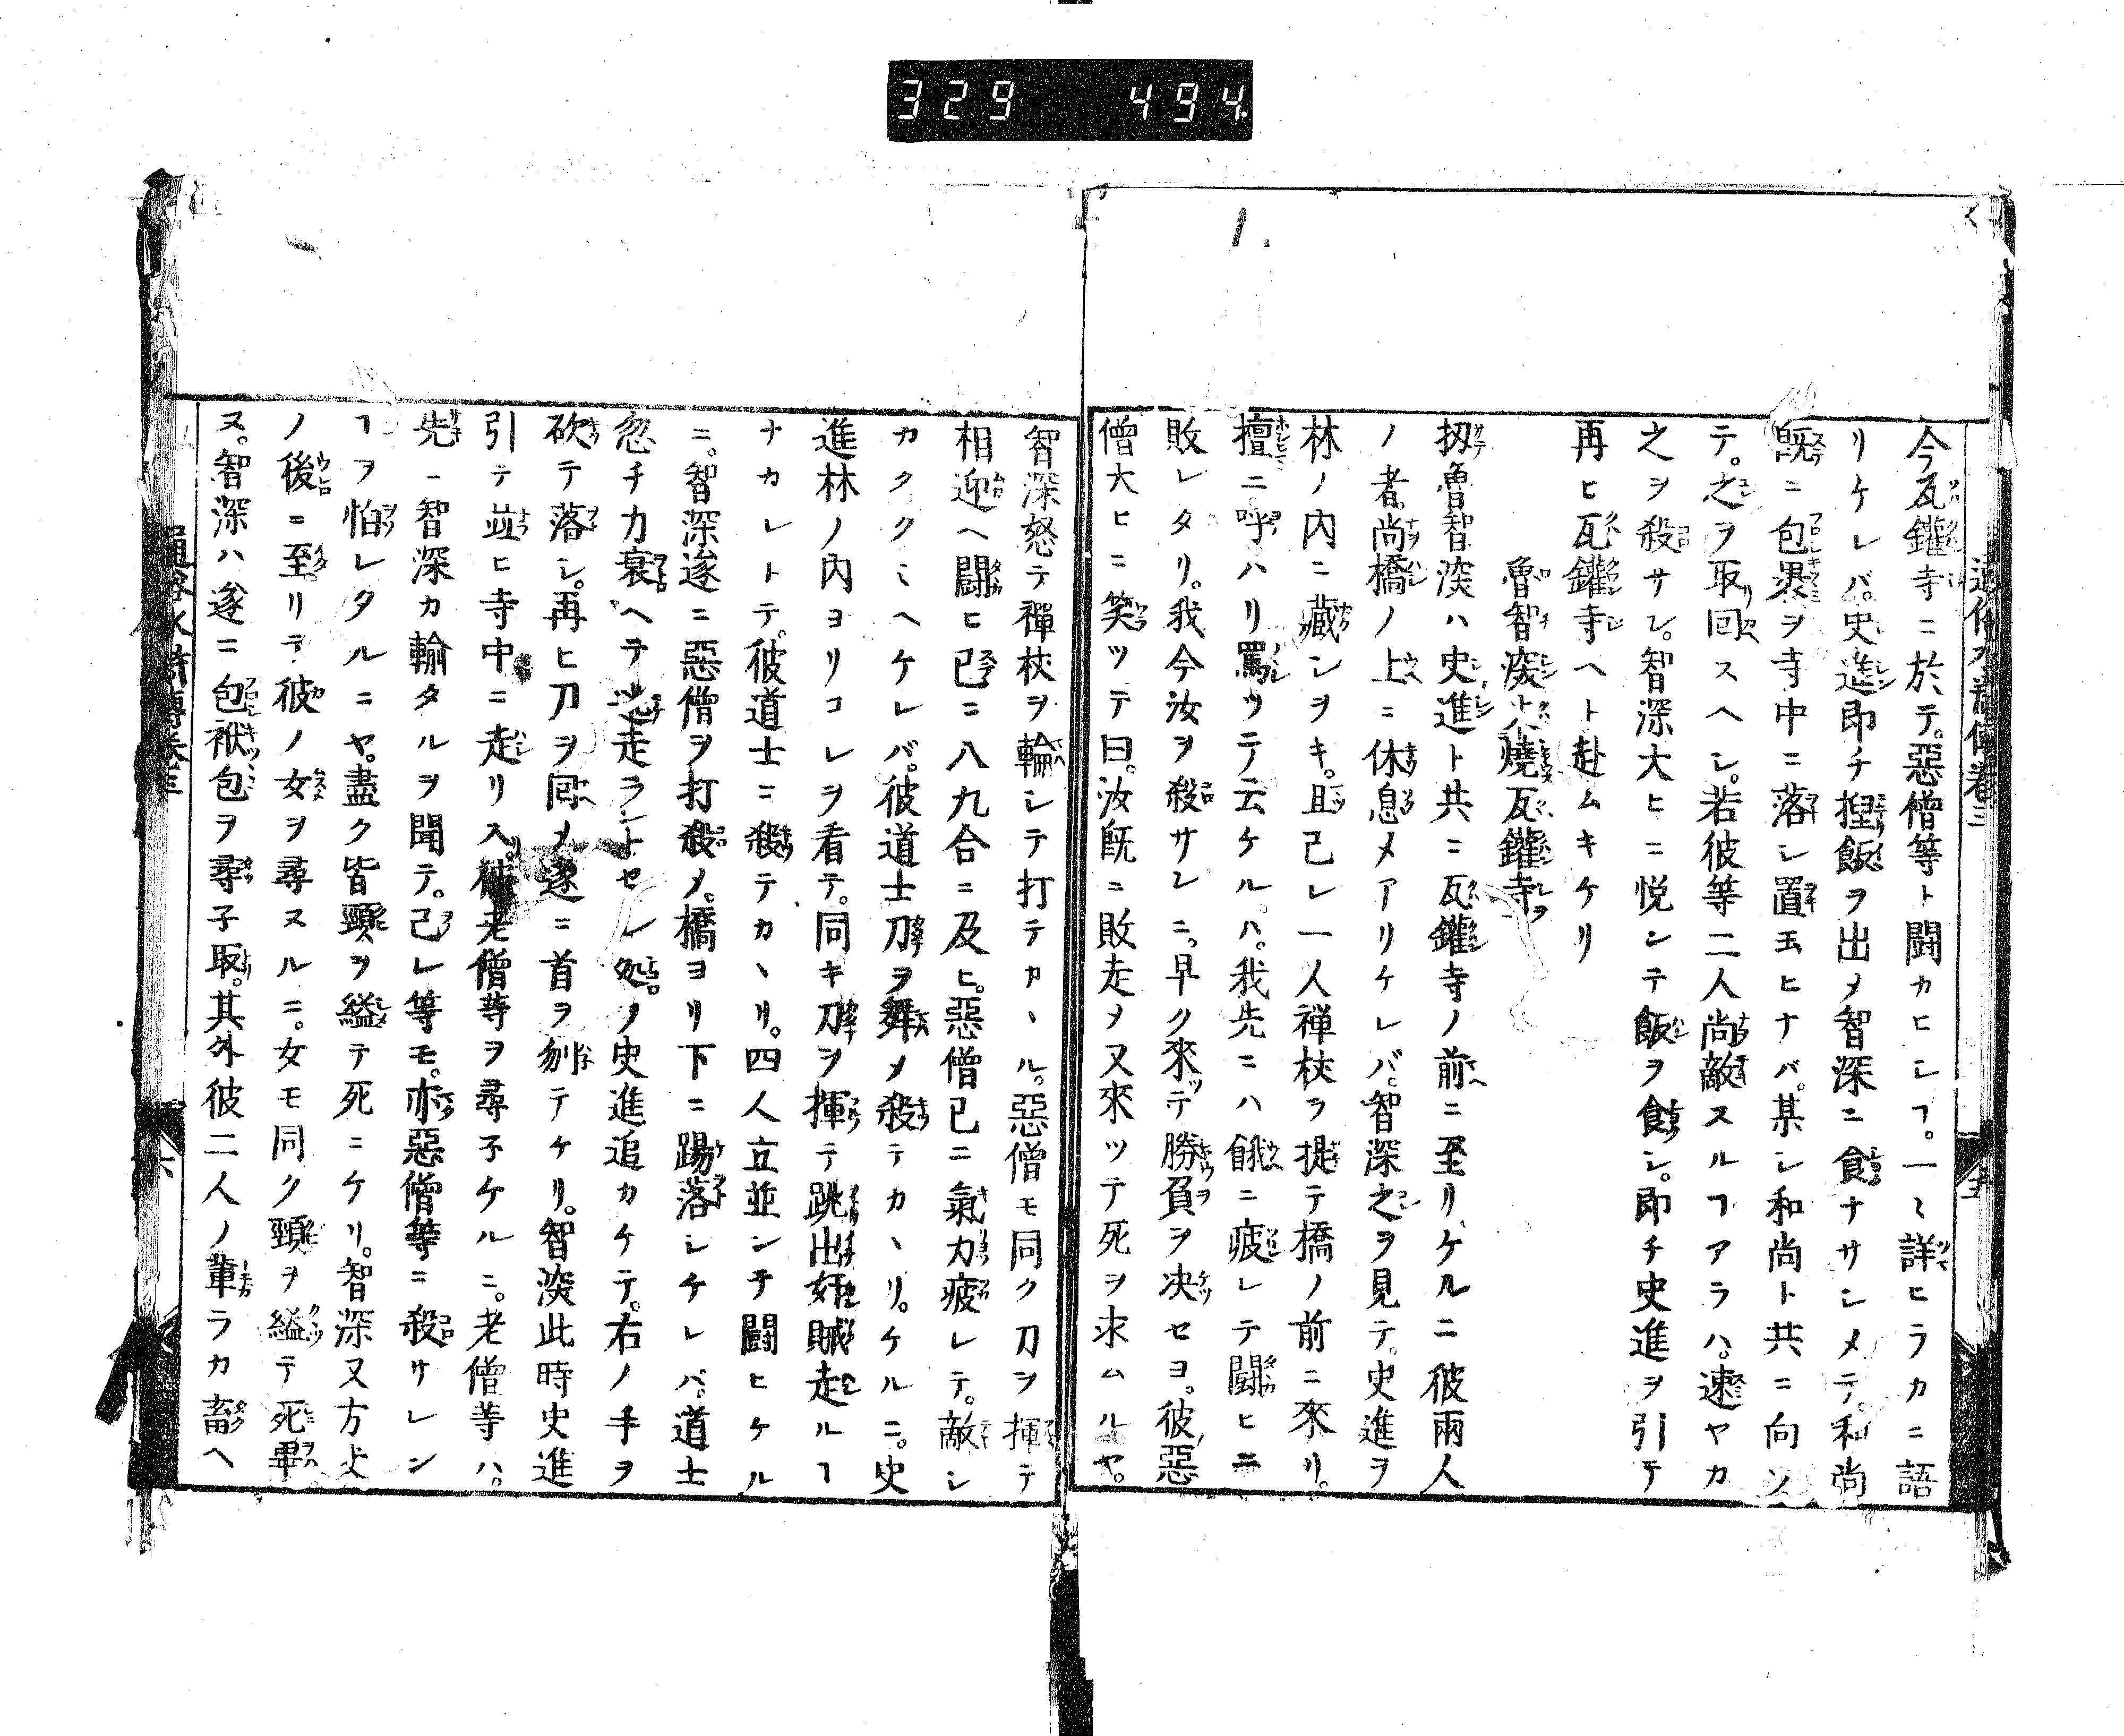 329 494
1.
通俗水滸傳卷三
五
今瓦鑵寺ニ於テ。惡僧等ト闘カヒシヿ。一〻詳ヒラカニ語
リケレバ。史進即チ揑飯ヲ出メ智深ニ食ナサシメテ。和尚
既ニ包褁ヲ寺中ニ落シ置玉ヒナバ。某シ和尚ト共ニ向ツ
テ。之ヲ取回スヘシ。若彼等二人尚敵スルヿアラハ。速ヤカ
之ヲ殺サレ。智深大ヒニ悦シテ飯ヲ食シ。即チ史進ヲ引テ
再ヒ瓦鑵寺ヘト赴ムキケリ
魯智深火燒瓦鑵寺ヲ
扨魯智深ハ史進ト共ニ瓦鑵寺ノ前ニ至リケルニ彼兩人
ノ者。尚橋ノ上ニ休息メアリケレバ。智深之ヲ見テ。史進ヲ
林ノ内ニ藏シヲキ。且己レ一人禅杖ヲ提テ橋ノ前ニ來リ。
擅ニ呼ハリ罵ツテ云ケルハ。我先ニハ餓ニ疲レテ闘ヒニ
敗レタリ。我今汝ヲ殺サレニ。早ク來ツテ勝負ヲ决セヨ。彼惡
僧大ヒニ笑ツテ曰。汝既ニ敗走メ又來ツテ死ヲ求ムルヤ。
智深怒テ禪杖ヲ輪シテ打テカヽル。惡僧モ同ク刀ヲ揮テ
相迎ヘ闘ヒ已ニ八九合ニ及ヒ。惡僧已ニ氣力疲レテ。敵シ
カタクミヘケレバ。彼道士刀ヲ舞メ殺テカヽリ。ケルニ。史
進林ノ内ヨリコレヲ看テ。同キ刀ヲ揮テ跳出奸賊走ルヿ
ナカレトテ。彼道士ニ殺テカヽリ。四人立並シテ闘ヒケル
ニ。智深遂ニ惡僧ヲ打殺メ。橋ヨリ下ニ踢落シケレバ。道士
忽チ力衰ヘテ逃走ラントセレ処。ノ史進追カケテ。右ノ手ヲ
砍テ落シ。再ヒ刀ヲ囘メ遂ニ首ヲ刎テケリ。智深此時史進
引テ並ヒ寺中ニ走リ入。彼老僧等ヲ尋子ケルニ。老僧等ハ。
先ニ智深カ輸タルヲ聞テ。己レ等モ。亦惡僧等ニ殺サレン
ヿヲ怕レタルニヤ。盡ク皆頸ヲ縊テ死ニケリ。智深又方丈
ノ後ニ至リテ彼ノ女ヲ尋ヌルニ。女モ同ク頸ヲ縊テ死畢
ヌ。智深ハ遂ニ包袱包ヲ尋子取。其外彼二人ノ輩ラカ畜ヘ
通俗水滸傳卷三
六